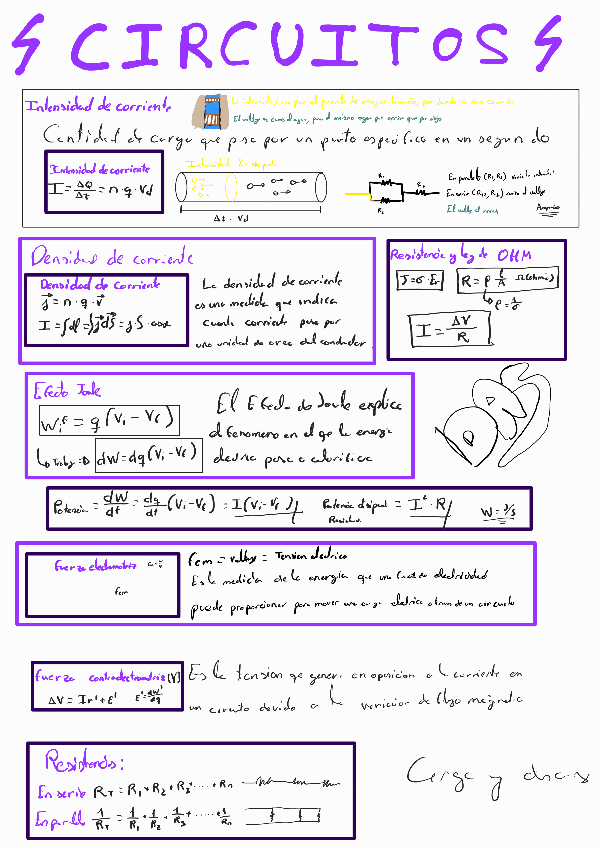 CIRCUITOS
Intensidad de corriente
Cantidad de carga que pasa por un punto especifico en un segundo
Intensidad de corriente
I = ΔQ/Δt = n·q·Vd
Intensidad
Δt · Vd
R1
R2
R3
En paralelo (R1, R2) varía la
En serie (R12, R3) varía el voltaje
El voltaje
Amperios
Densidad de corriente
Densidad de corriente
j = n·q·v
La densidad de corriente
es una medida que indica
cuanta corriente pasa por
una unidad de area del conductor.
Resistencia y ley de OHM
J=σ·E
R = ρ l/A Ω(ohmio)
ρ = 1/σ
I = ΔV/R
Efecto Joule
W = q(Vi - Vf)
Trabajo dW = dq(Vi - Vf)
El Efecto de Joule explica
el fenomeno en el que la energia
electrica pasa a calorifica
Potencia = dW/dt = dq/dt (Vi - Vf) = I(Vi - Vf)
Potencia disipada = I²·R
Resistencia
W = J/s
Fuerza electromotriz
fem
fem = voltaje = Tension electrica
Es la medida de la energía que una fuente de electricidad
puede proporcionar para mover una carga electrica a traves de un circuito
Fuerza contraelectromotriz (V)
ΔV = Ir' + E'
E' = dW'/dq
Es la tension que genera en oposicion a la corriente en
un circuito devido a la variacion de flujo magnetico
Resistencias:
En serie RT = R1 + R2 + R3 + ····· + Rn
En paralelo 1/RT = 1/R1 + 1/R2 + 1/R3 + ····· + 1/Rn
Carga y